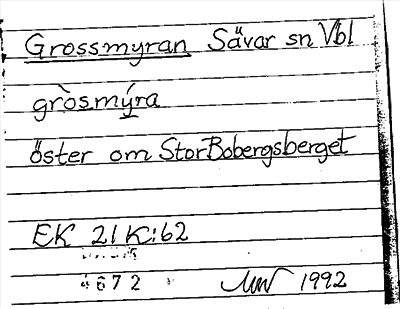 Grossmyran Sävar sn Vbl
gròsmýra
öster om StorBobergsberget
EK 21 K:62
4672 1992